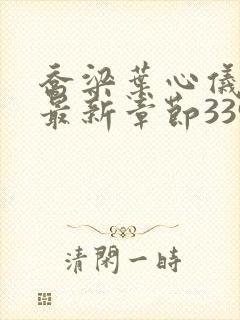 乔梁叶心仪
最新章节339
清閑一時